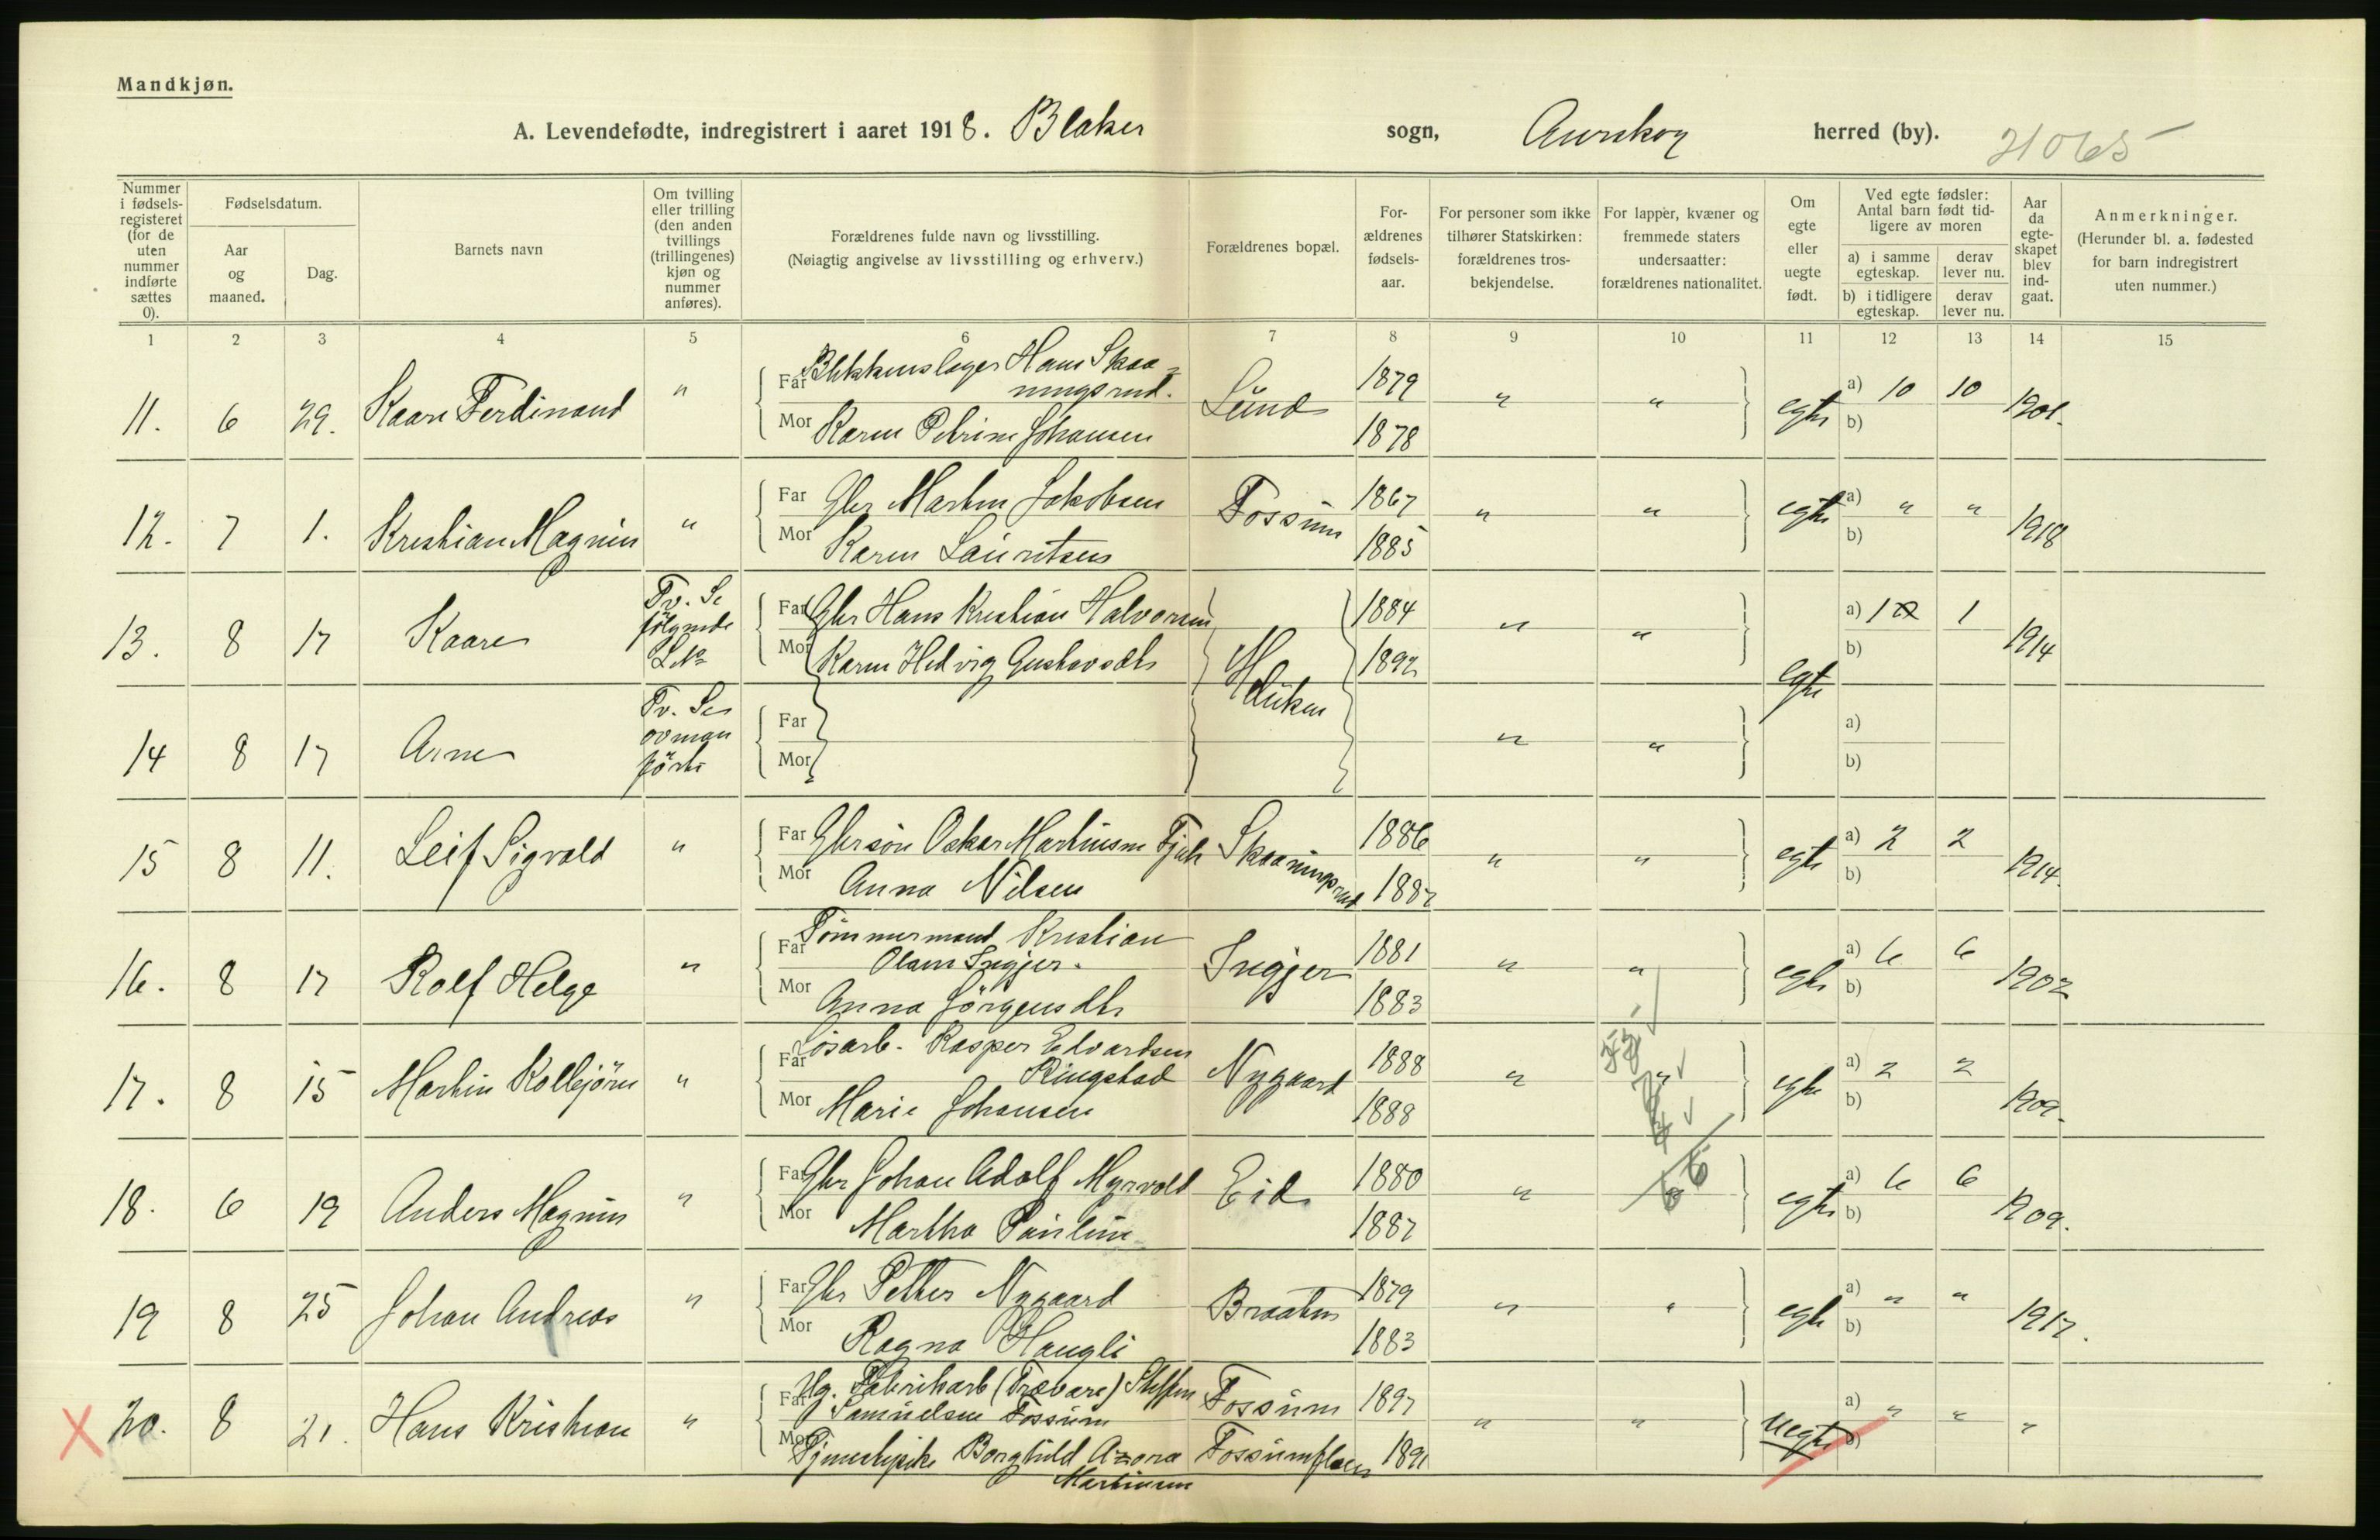 Mandkjøn.
A. Levendefødte, indregistrert i aaret 1918. Blaker sogn, Aurskog herred (by). 21065
Nummer i fødsels-registeret (for de uten nummer indførte sættes 0).
Fødselsdatum.
Aar og maaned.
Dag.
Barnets navn
Om tvilling eller trilling (den anden tvillings (trillingenes) kjøn og nummer anføres).
Forældrenes fulde navn og livsstilling.
(Nøiagtig angivelse av livsstilling og erhverv.)
Forældrenes bopæl.
For-ældrenes fødsels-aar.
For personer som ikke tilhører Statskirken: forældrenes tros-bekjendelse.
For lapper, kvæner og fremmede staters undersaatter: forældrenes nationalitet.
Om egte eller uegte født.
Ved egte fødsler: Antal barn født tid-ligere av moren
a) i samme egteskap.
derav lever nu.
b) i tidligere egteskap.
derav lever nu.
Aar da egte-skapet blev ind-gaat.
Anmerkninger.
(Herunder bl. a. fødested for barn indregistrert uten nummer.)
1 2 3 4 5 6 7 8 9 10 11 12 13 14 15
Far Blikkenslager Hans Skaa-
ningsrud. 1879 a) 10 10
11. 6 29. Kaare Ferdinand " Lund " " egte 1901.
Mor Karen Petrine Johansen 1878 b)
Far Gbr Martin Jakobsen 1867 a) " "
12. 7 1. Kristian Magnus " Fossum " " egte 1918
Mor Karen Lauritsen 1885 b)
Tv. Se
Far Gbr Hans Kristian Halvorsen 1884 a) 1 1
13. 8 17 Kaare følgende " " 1914
Mor Karen Hedvig Gustavsdtr 1892 b)
Huken egte
Tv. Se
ovman
Far a)
14 8 17 Arne førte " "
Mor b)
Far Gbrsøn Oskar Martinsen 1886 a) 2 2
15 8 11. Leif Sigvald " Skaaningsrud " " egte 1914.
Mor Anna Nilsen 1887 b)
Far Tømmermand Kristian
Olsen Ingjer. 1881 a) 6 6
16. 8 17 Rolf Helge " Ingjer " " egte 1902
Mor Anna Jörgensdtr 1883 b)
Far Løsarb. Kasper Edvardsen
Ringstad 1888 a) 2 2
17. 8 15 Martin Kolbjörn " Nygaard " " egte 1909.
Mor Marie Johansen 1888 b)
Far Gbr Johan Adolf Myrvold 1880 a) 6 6
18. 6 19 Anders Magnus " Eid " egte 1909.
Mor Martha Pauline 1887 b)
66
Far Gbr Petter Nygaard 1879 a) " "
19 8 25 Johan Andreas " Braaten " " egte 1917.
Mor Ragna Haugli 1883 b)
Far Ug. Fabrikarb (Trævare) Steffen
Samuelsen Fossum Fossum 1897 a) " "
X 20. 8 21. Hans Kristian " " " uegte "
Mor Tjenestepike Borghild Azora Fossumfloen 1891 b)
Martinsen